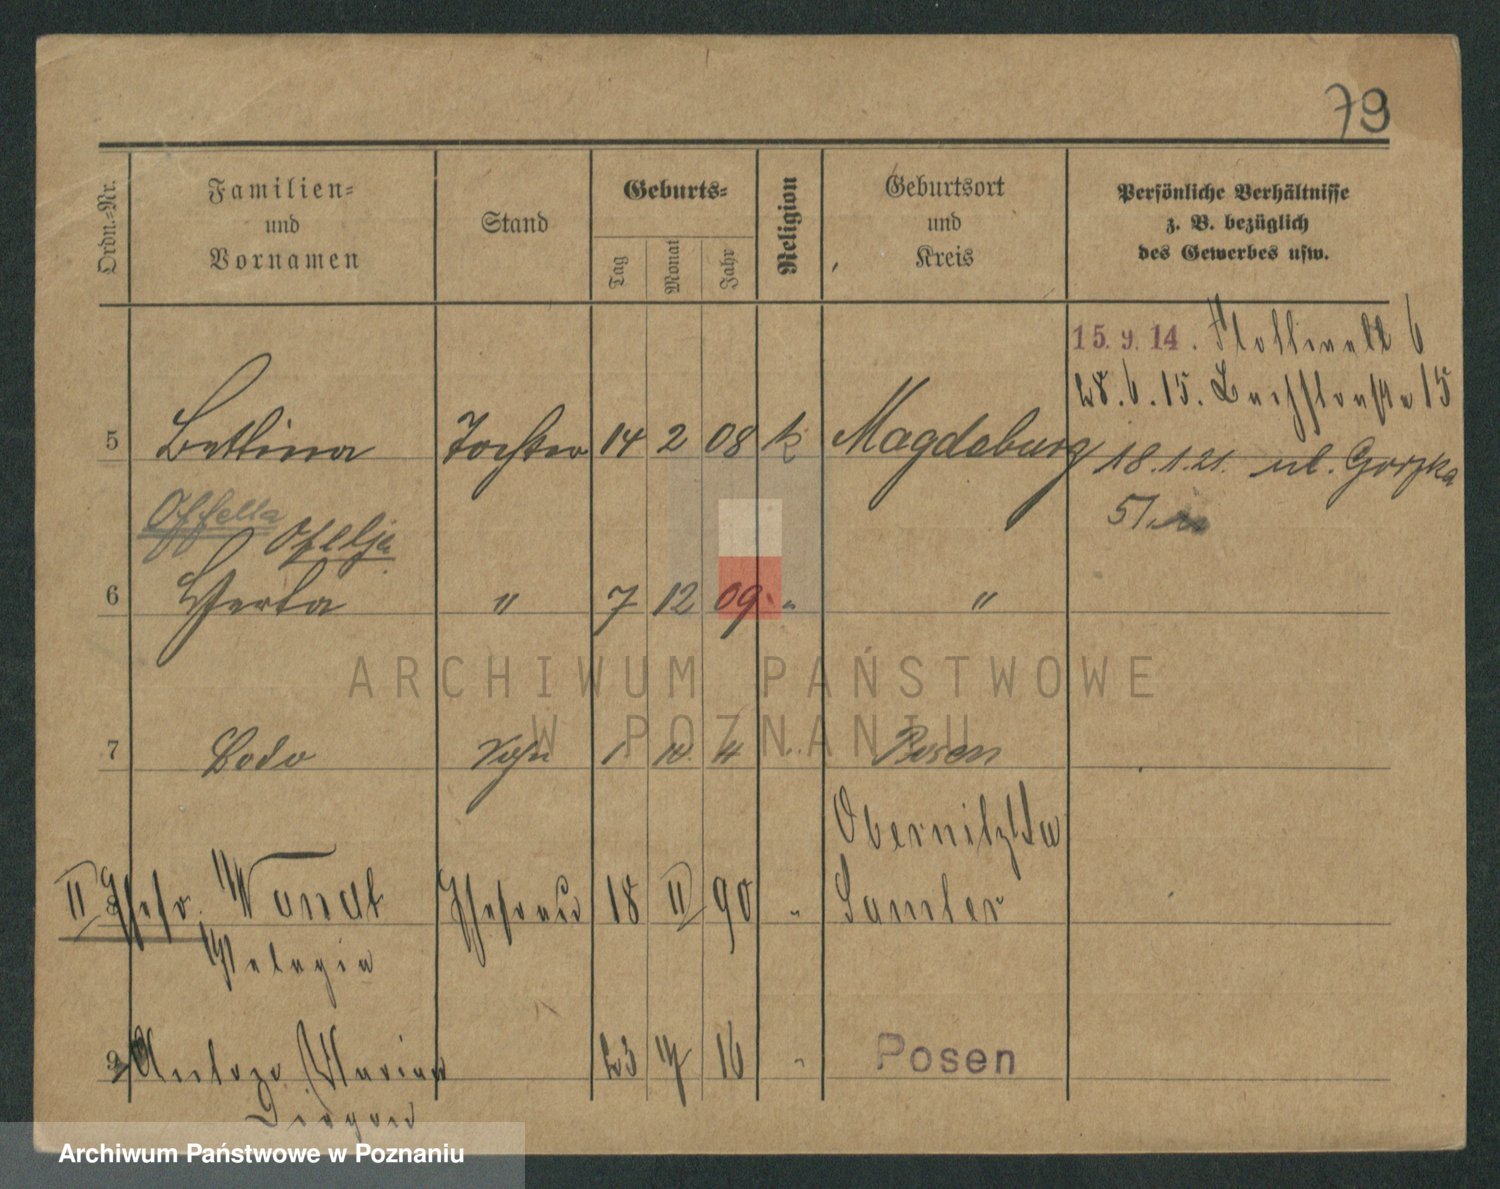 79
Ordn.-Nr.
Familien-
und
Vornamen
Stand
Geburts-
Tag
Monat
Jahr
Religion
Geburtsort
und
Kreis
Persönliche Verhältnisse
z. B. bezüglich
des Gewerbes usw.
15.9.14. Flottwell 6
28.6.15.
5 Bettina Tochter 14 2 08 k Magdeburg
18.1.21. ul. Gorzka
51
Offella Ofelja
6 Herta " 7 12 09 " "
7 Bodo Sohn 1 10. 11 " Posen
Obernitzka
II Ehefr. Wandt Ehefrau 18 II 90 " Samter
Pelagia
9 Marian 23 16 " Posen
ARCHIWUM PAŃSTWOWE
W POZNANIU
Archiwum Państwowe w Poznaniu